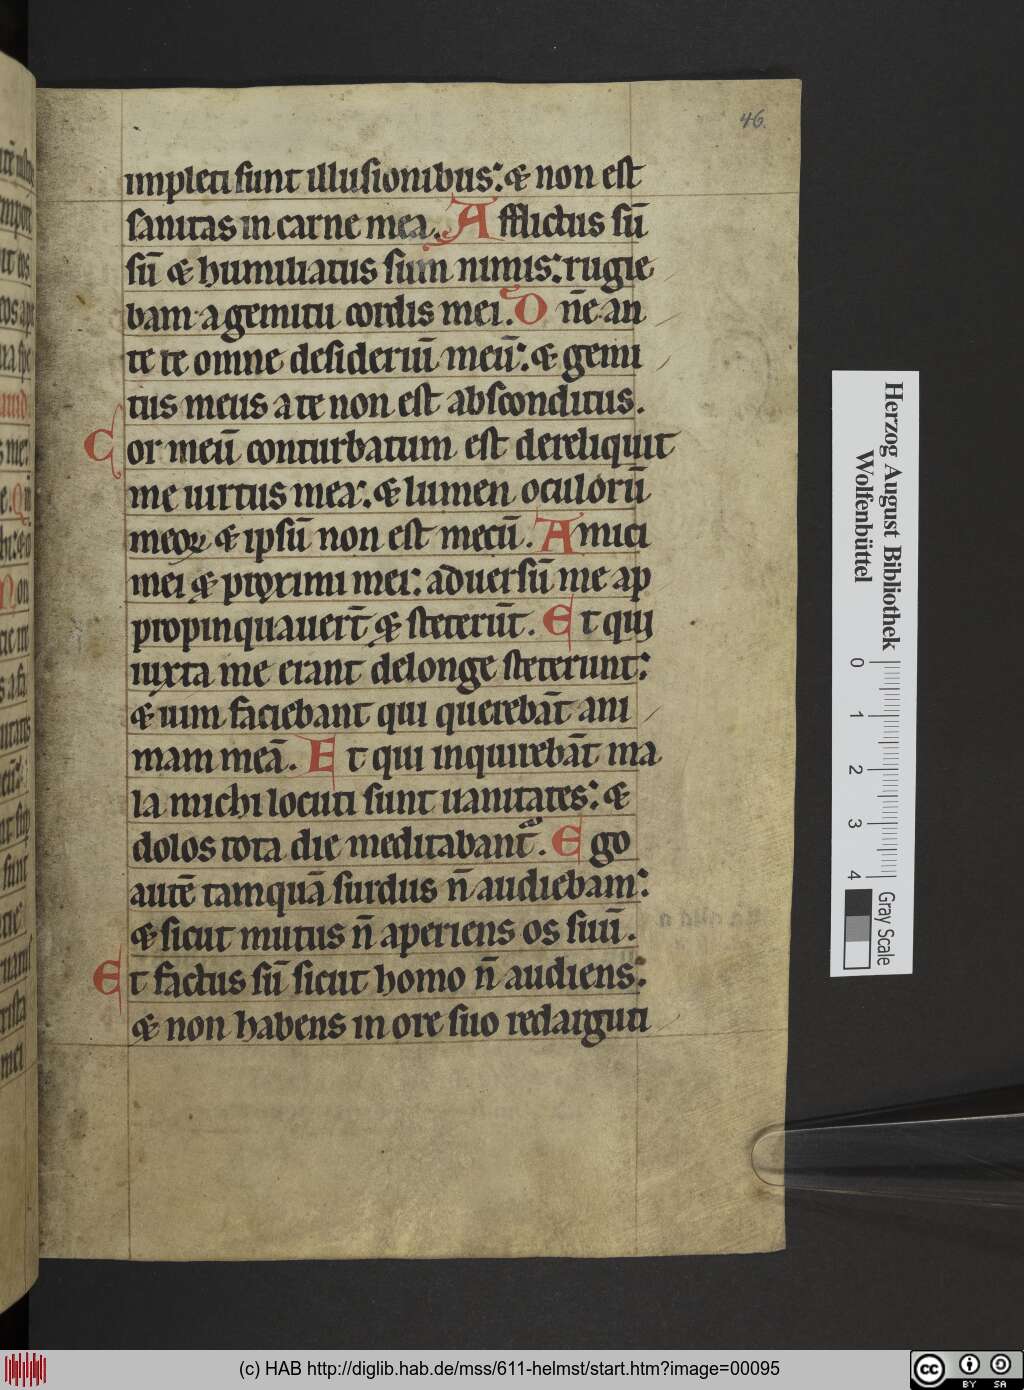 46.
impleti sunt illusionibus: & non est
sanitas in carne mea. Afflictus sū
sū & humiliatus sum nimis: rugie
bam a gemitu cordis mei. Dn̄e an
te te omne desideriū meū: & gemi
tus meus a te non est absconditus.
Cor meū conturbatum est dereliquit
me uirtus mea: & lumen oculorū
meoꝝ & ipsū non est mecū. Amici
mei & pręximi mei: aduersū me ap
propinquauert̄ & steterūt. Et qui
iuxta me erant delonge steterunt:
& uim faciebant qui querebāt ani
mam meā. Et qui inquirebāt ma
la michi locuti sunt uanitates: &
dolos tota die meditabant᷑. Ego
autē tamquā surdus n̄ audiebam:
& sicut mutus n̄ aperiens os suū.
Et factus sū sicut homo n̄ audiens:
& non habens in ore suo redarguti
Herzog August Bibliothek
Wolfenbüttel
0 1 2 3 4
Gray Scale
(c) HAB http://diglib.hab.de/mss/611-helmst/start.htm?image=00095
cc BY SA